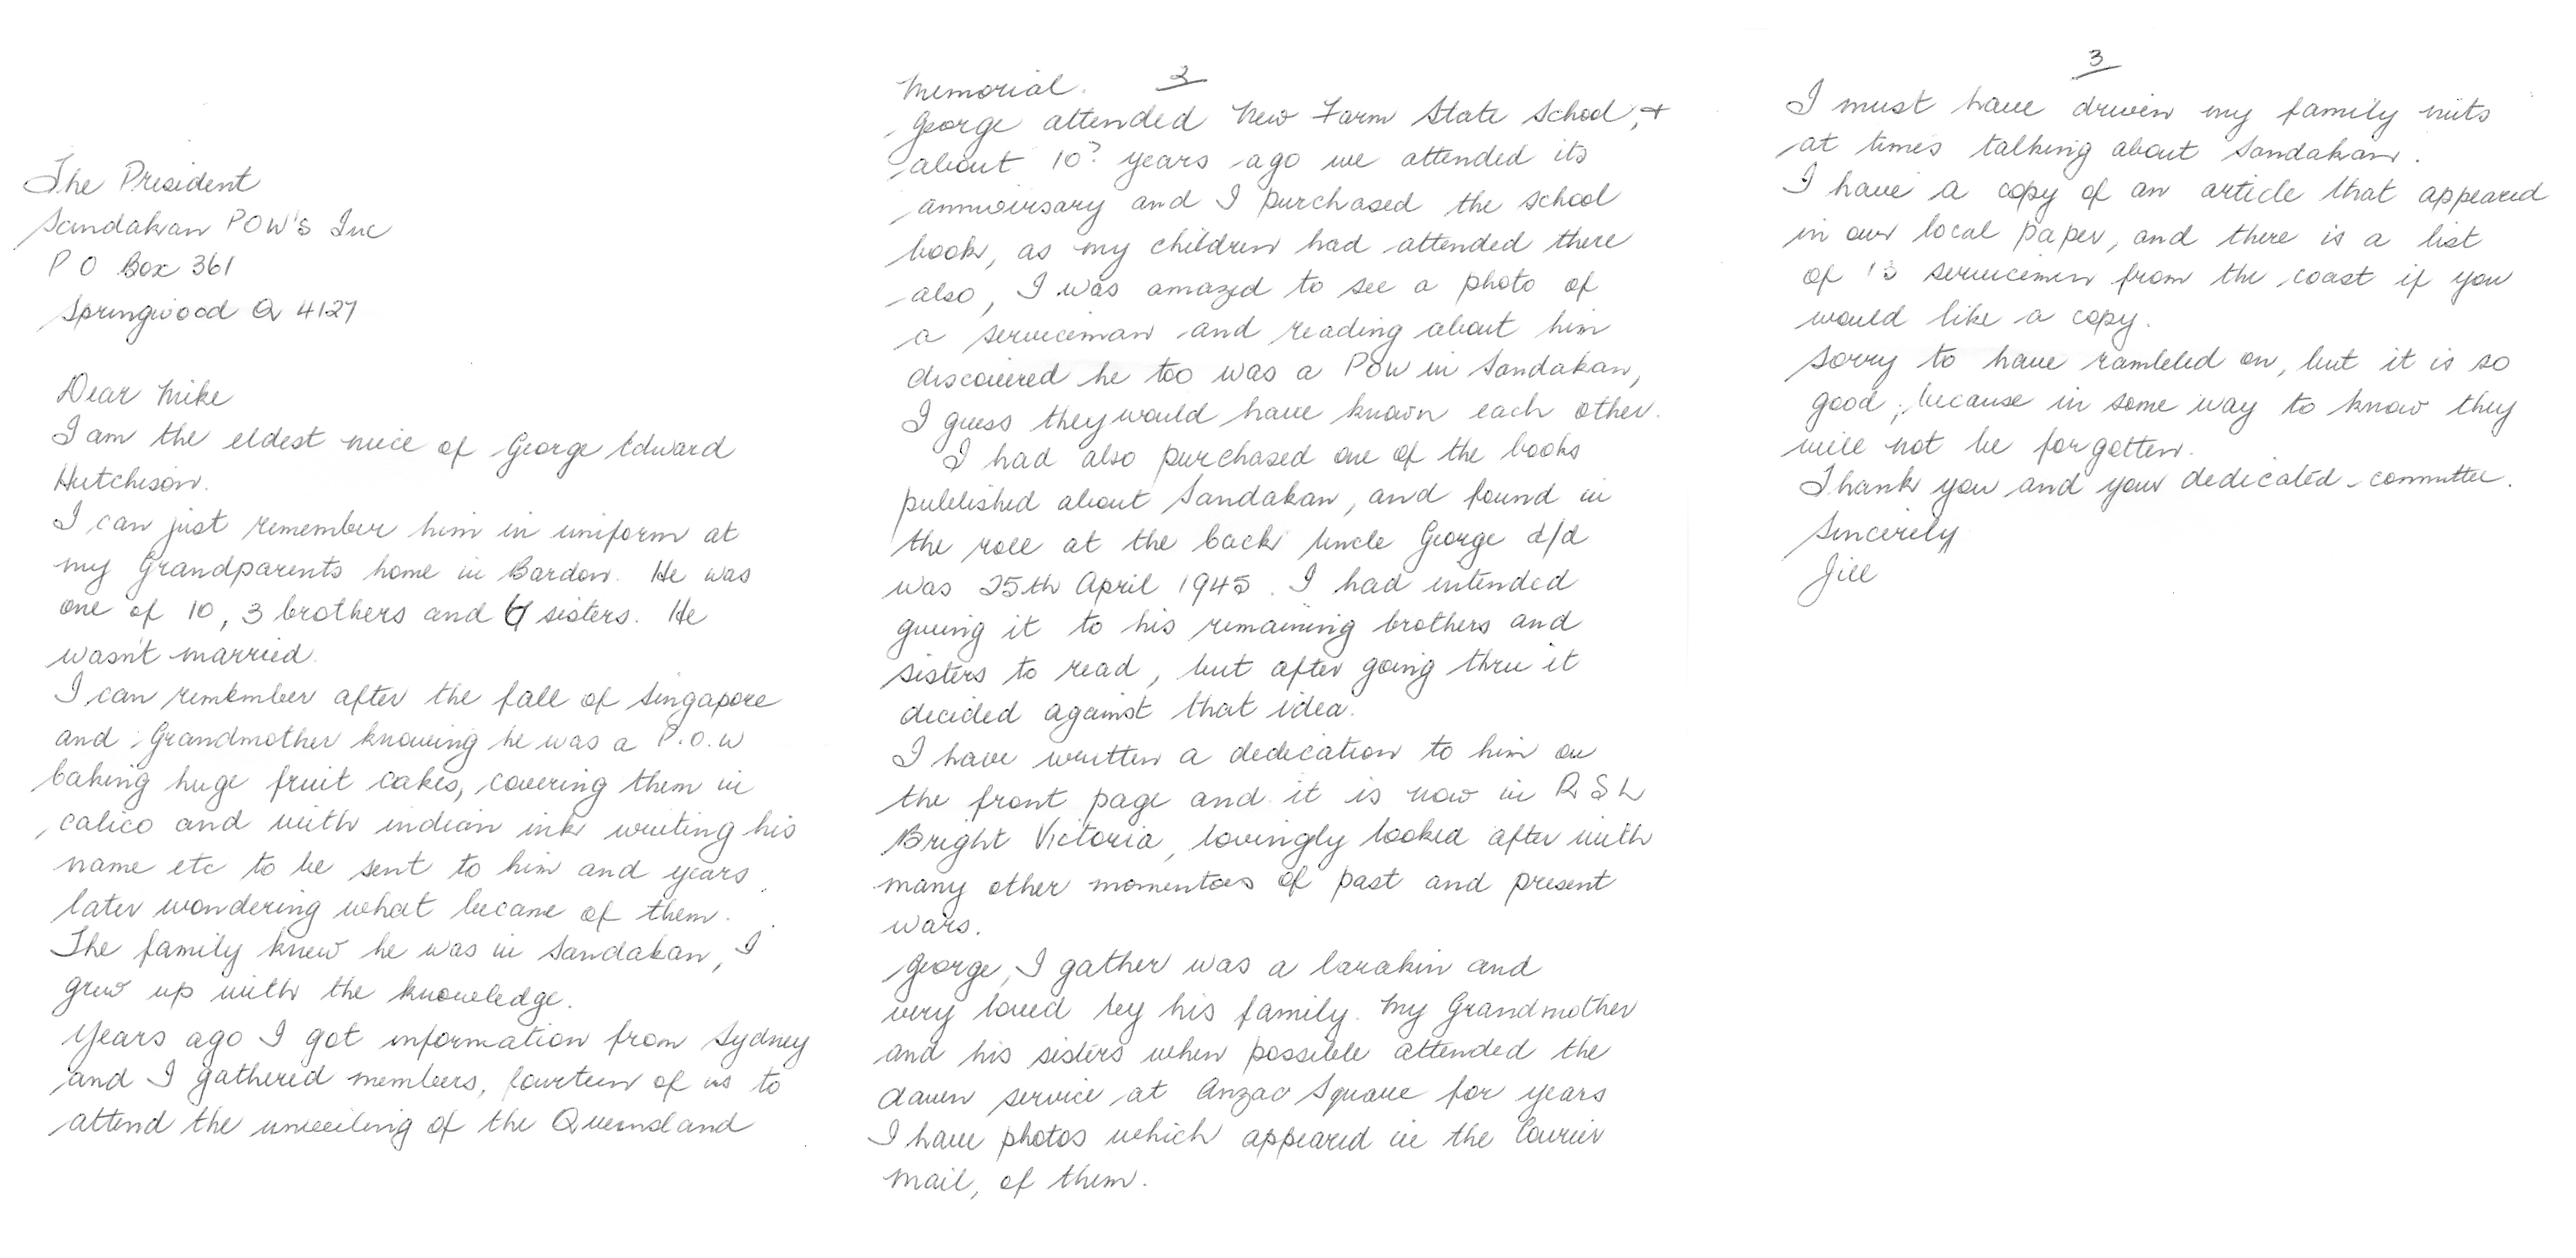 The President
Sandakan POW's Inc
P O Box 361
Springwood Q 4127
Dear Mike
I am the eldest niece of George Edward
Hutchison.
I can just remember him in uniform at
my Grandparents home in Bardon. He was
one of 10, 3 brothers and sisters. He
wasn't married.
I can remember after the fall of Singapore
and Grandmother knowing he was a P.O.W
baking huge fruit cakes, covering them in
calico and with indian ink writing his
name etc to be sent to him and years
later wondering what became of them.
The family knew he was in Sandakan, I
grew up with the knowledge.
Years ago I got information from Sydney
and I gathered members, fourteen of us to
attend the unveiling of the Queensland
2
Memorial.
George attended New Farm State School, +
about 10? years ago we attended its
anniversary and I purchased the school
book, as my children had attended there
also, I was amazed to see a photo of
a serviceman and reading about him
discovered he too was a POW in Sandakan,
I guess they would have known each other.
I had also purchased one of the books
published about Sandakan, and found in
the role at the back Uncle George d/d
was 25th April 1945. I had intended
giving it to his remaining brothers and
sisters to read, but after going thru it
decided against that idea.
I have written a dedication to him on
the front page and it is now in R S L
Bright Victoria, lovingly looked after with
many other momentoes of past and present
wars.
George, I gather was a larakin and
very loved by his family. My Grandmother
and his sisters when possible attended the
dawn service at Anzac Square for years
I have photos which appeared in the Courier
Mail, of them.
3
I must have driven my family nuts
at times talking about Sandakan.
I have a copy of an article that appeared
in our local paper, and there is a list
of servicemen from the coast if you
would like a copy.
Sorry to have rambled on, but it is so
good, because in some way to know they
will not be forgotten.
Thank you and your dedicated committee.
Sincerely
Jill